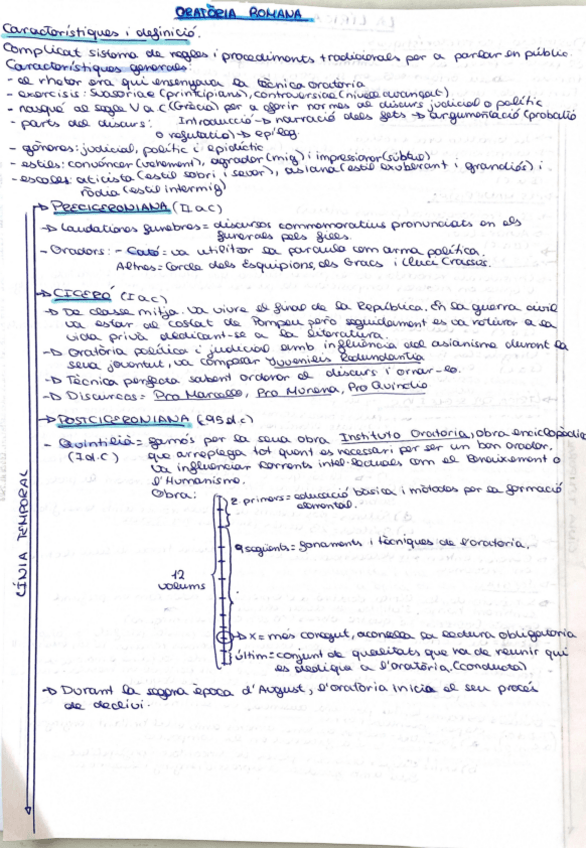 ORATÒRIA ROMANA
Característiques i definició.
Complicat sistema de regles i procediments tradicionals per a parlar en públic.
Característiques generals:
- el rhetor era qui ensenyava la tècnica oratòria
- exercisis: suasoriae (principians), controversiae (nivell avançat)
- nasqué al segle V a C (Grècia) per a oferir normes al discurs judicial o polític
- parts del discurs: Introducció → narració dels fets → argumentació (probatio
o refutatio) → epíleg.
- gèneres: judicial, polític i epidíctic
- estils: convèncer (vehement), agradar (mig) i impresionar (sùbtil)
- escoles: aticista (estil sobri i sever), asiana (estil exuberant i grandiós) i
ròdia (estil intermig)
PRECICERONIANA (II a C)
→ Laudationes funebres = discursos commemoratius pronunciats en els
funerals pels fills.
- Oradors: - Cató = va utilitzar la paraula com arma política.
Altres = Cercle dels Esquipions, els Gracs i Lluci Crasse.
CICERÓ (I a C)
→ De classe mitja. Va viure el final de la República. En la guerra civil
va estar al costat de Pompeu però seguidament es va retirar a la
vida privà dedicant-se a la literatura.
→ Oratòria política i judicial amb influència del asianisme durant la
seua joventut, va comparar Iuvenilis Redundantia
→ Tècnica perfecta sabent ordenar el discurs i ornar-lo.
→ Discursos = Pro Marcello, Pro Murena, Pro Quinctio
POSTCICERONIANA (95 d.c)
- Quintilià = famós per la seua obra Institutio Oratoria, obra enciclopèdica
(I d.C) que arreplega tot quant es necessari per ser un bon orador.
Va influenciar corrents intel·lectuals com el Renaixement o
l'Humanisme.
Obra:
2 primers = educació bàsica i mètodes per la formació
elemental.
9 següents = fonaments i tècniques de l'oratòria.
12
volums
X = més conegut, aconsella la lectura obligatoria
últim = conjunt de qualitats que ha de reunir qui
es dedique a l'oratòria. (conducta)
→ Durant la segona època d'August, l'oratòria inicia el seu procés
de declivi.
LÍNIA TEMPORAL